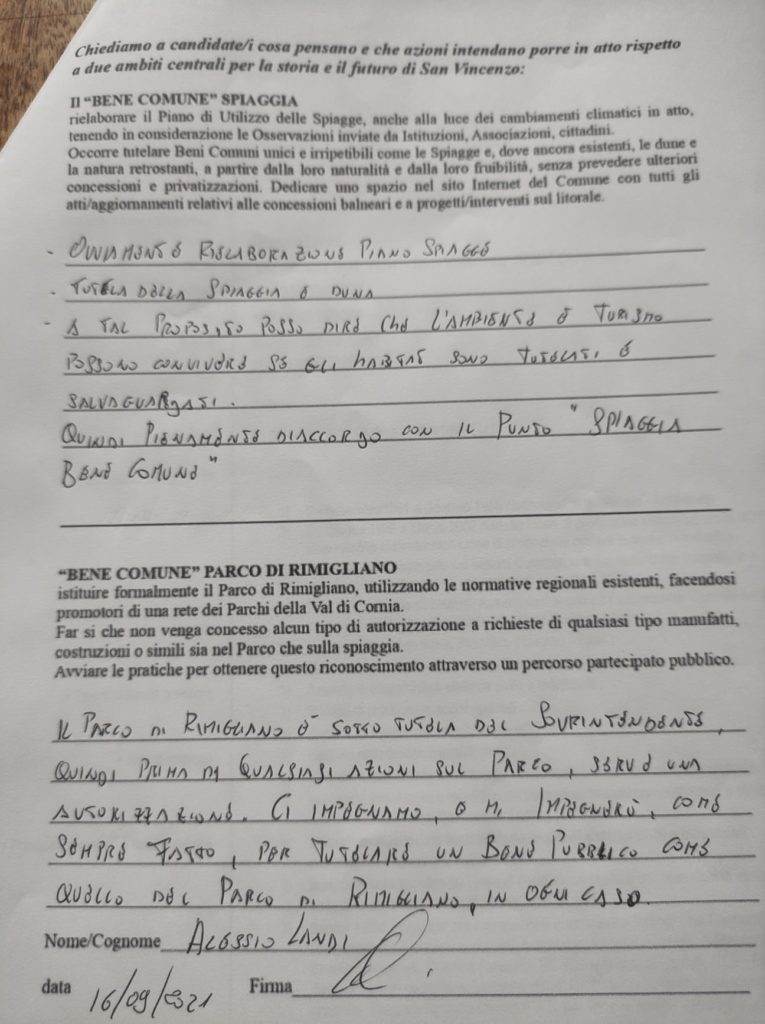 Chiediamo a candidate/i cosa pensano e che azioni intendano porre in atto rispetto
a due ambiti centrali per la storia e il futuro di San Vincenzo:
Il “BENE COMUNE” SPIAGGIA
rielaborare il Piano di Utilizzo delle Spiagge, anche alla luce dei cambiamenti climatici in atto,
tenendo in considerazione le Osservazioni inviate da Istituzioni, Associazioni, cittadini.
Occorre tutelare Beni Comuni unici e irripetibili come le Spiagge e, dove ancora esistenti, le dune e
la natura retrostanti, a partire dalla loro naturalità e dalla loro fruibilità, senza prevedere ulteriori
concessioni e privatizzazioni. Dedicare uno spazio nel sito Internet del Comune con tutti gli
atti/aggiornamenti relativi alle concessioni balneari e a progetti/interventi sul litorale.
- OVVIAMENTE RIELABORAZIONE PIANO SPIAGGE
- TUTELA DELLA SPIAGGIA E DUNA
- A TAL PROPOSITO POSSO DIRE CHE L'AMBIENTE E TURISMO
POSSONO CONVIVERE SE GLI HABITAT SONO TUTELATI E
SALVAGUARDATI.
QUINDI PIENAMENTE DIACCORDO CON IL PUNTO "SPIAGGIA
BENE COMUNE"
“BENE COMUNE” PARCO DI RIMIGLIANO
istituire formalmente il Parco di Rimigliano, utilizzando le normative regionali esistenti, facendosi
promotori di una rete dei Parchi della Val di Cornia.
Far si che non venga concesso alcun tipo di autorizzazione a richieste di qualsiasi tipo manufatti,
costruzioni o simili sia nel Parco che sulla spiaggia.
Avviare le pratiche per ottenere questo riconoscimento attraverso un percorso partecipato pubblico.
IL PARCO DI RIMIGLIANO E' SOTTO TUTELA DEL SOVRINTENDENTE,
QUINDI PRIMA DI QUALSIASI AZIONI SUL PARCO, SERVE UNA
AUTORIZZAZIONE. CI IMPEGNAMO, O MI IMPEGNERO', COME
SEMPRE FATTO, PER TUTELARE UN BENE PUBBLICO COME
QUELLO DEL PARCO DI RIMIGLIANO, IN OGNI CASO.
Nome/Cognome ALESSIO LANDI
data 16/09/2021 Firma